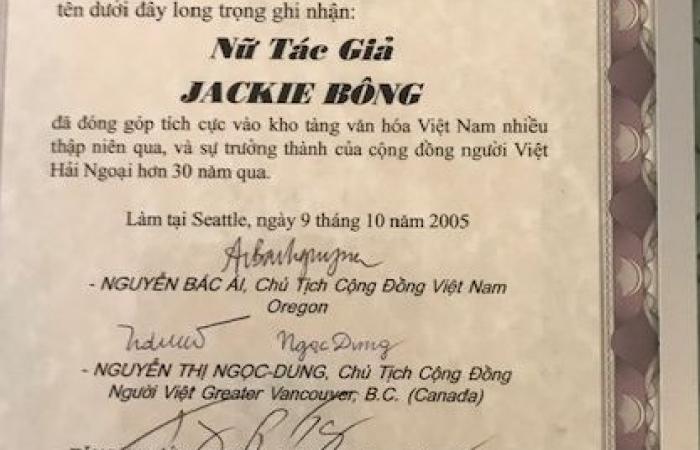 tên dưới đây long trọng ghi nhận:
Nữ Tác Giả
JACKIE BÔNG
đã đóng góp tích cực vào kho tàng văn hóa Việt Nam nhiều
thập niên qua, và sự trưởng thành của cộng đồng người Việt
Hải Ngoại hơn 30 năm qua.
Làm tại Seattle, ngày 9 tháng 10 năm 2005
- NGUYỄN BÁC ÁI, Chủ Tịch Cộng Đồng Việt Nam
Oregon
Ngọc Dung
- NGUYỄN THỊ NGỌC-DUNG, Chủ Tịch Cộng Đồng
Người Việt Greater Vancouver, B.C. (Canada)